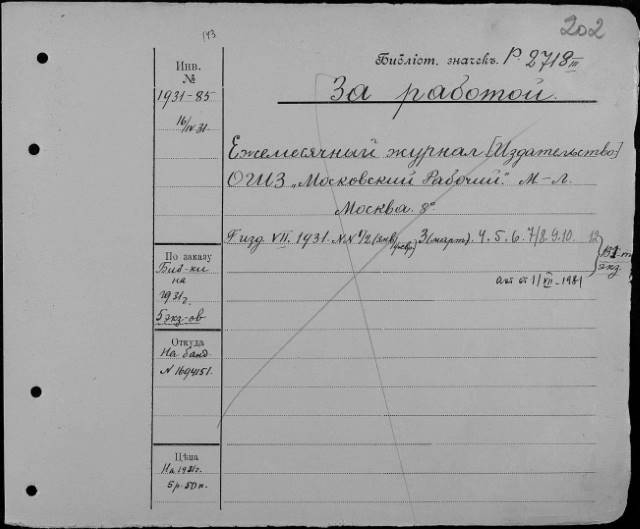 202
143
Инв.
№
Библіот. значекъ. Р. 2718 III
1931-85
За работой.
16/IV 31
Ежемесячный журнал [Издательство]
ОГИЗ „Московский Рабочий". М-Л.
Москва. 8°
Г. изд. VII. 1931. NN 1/2 (янв/февр) 3 (март). 4. 5. 6. 7/8. 9. 10. 12
По заказу
Биб-ки
на
1931г.
5 экз-ов
экз.
акт от 1/VII-1981
Откуда
На банд
N 1694151.
Цѣна
На 1931г.
5 р. 50 к.